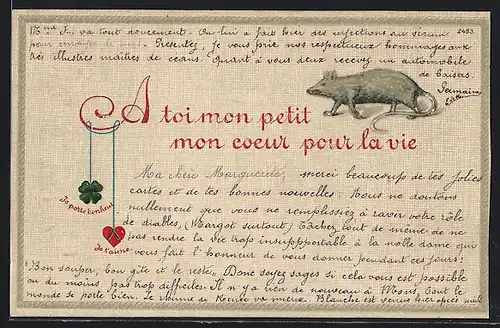 Mme J... va tout doucement. On lui a fait hier des injections au sérum
2483
pour Présentez, je vous prie nos respectueux hommages aux
très illustres maîtres de céans. Quant à vous deux recevez un automobile
de baisers.
Germaine
A toi mon petit
mon coeur pour la vie
Je porte bonheur
Je t'aime
Ma chère Marguerite, merci beaucoup de tes jolies
cartes et de tes bonnes nouvelles. Nous ne doutons
nullement que vous ne remplissiez à ravir votre rôle
de diables, (Margot surtout) Tâchez tout de même de ne
pas rendre la vie trop insupportable à la noble dame qui
vous fait l'honneur de vous donner pendant ces jours:
"Bon souper, bon gîte et le reste". Donc soyez sages si cela vous est possible
ou du moins pas trop difficiles. Il n'y a rien de nouveau à Mons, tout le
monde se porte bien. Le rhume de va mieux. Blanche est venue hier après midi